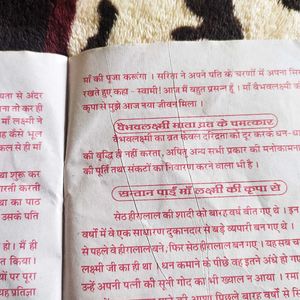 यता से अंदर
ना तो कर ही
माँ लक्ष्मी ने
ह कैसे भूल
कल से ही माँ
था शुरू कर
आरती करती
था का पाठ
उसके पति
हो । मैं ही
त किया ।
र्यों पर पूरा
उन्हें यह प्रतिज्ञा
माँ की पूजा करूंगा । सरिता ने अपने पति के चरणों में अपना सिर
रखते हुए कहा - स्वामी! आज मैं बहुत प्रसन्न हूँ । माँ वैभवलक्ष्मी की
कृपा से मुझे आज नया जीवन मिला ।
वैभवलक्ष्मी माता व्रत के चमत्कार
वैभवलक्ष्मी का व्रत केवल दरिद्रता को दूर करके धन-
की वृद्धि ही नहीं करता, अपितु अन्य सभी प्रकार की मनोकामना
की पूर्ति तथा संकटों का निवारण करने वाला भी है ।
सन्तान पाई माँ लक्ष्मी की कृपा से
सेठ हीरालाल की शादी को बारह वर्ष बीत गए थे । इन
वर्षों में वे एक साधारण दुकानदार से बड़े व्यापारी बन गए थे ।
से पहले वे हीरालाल बने, फिर सेठ हीरालाल बन गए । यह सब
लक्ष्मी जी का ही था । धन कमाने के पीछे वह इतने अंधे हो गए
उन्हें अपनी पत्नी की सूनी गोद का भी ख्याल न आया । रमा